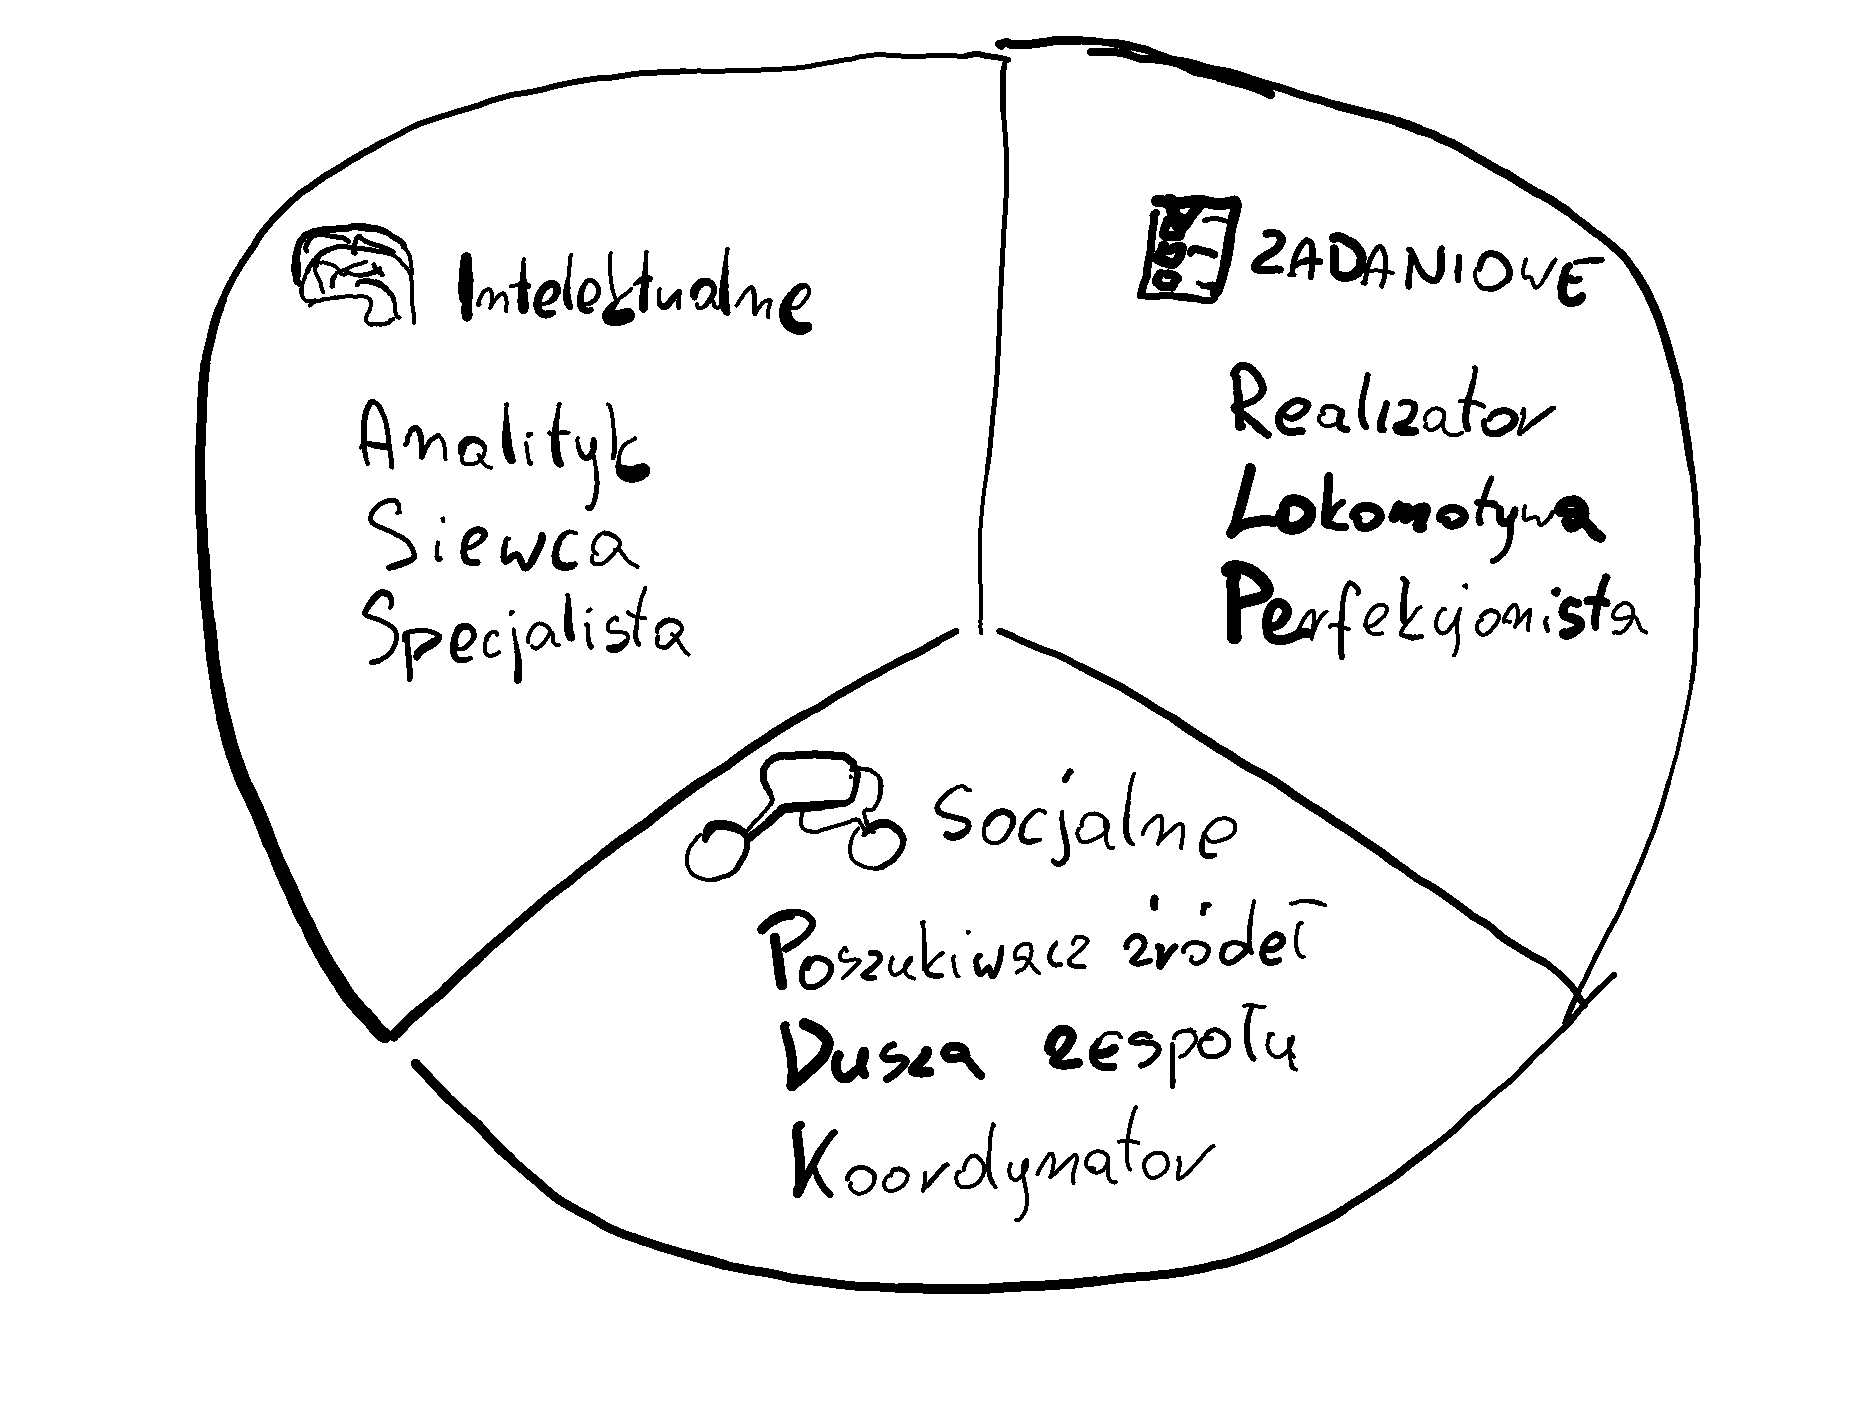 Intelektualne
Analityk
Siewca
Specjalista
ZADANIOWE
Realizator
Lokomotywa
Perfekcjonista
Socjalne
Poszukiwacz źródeł
Dusza zespołu
Koordynator